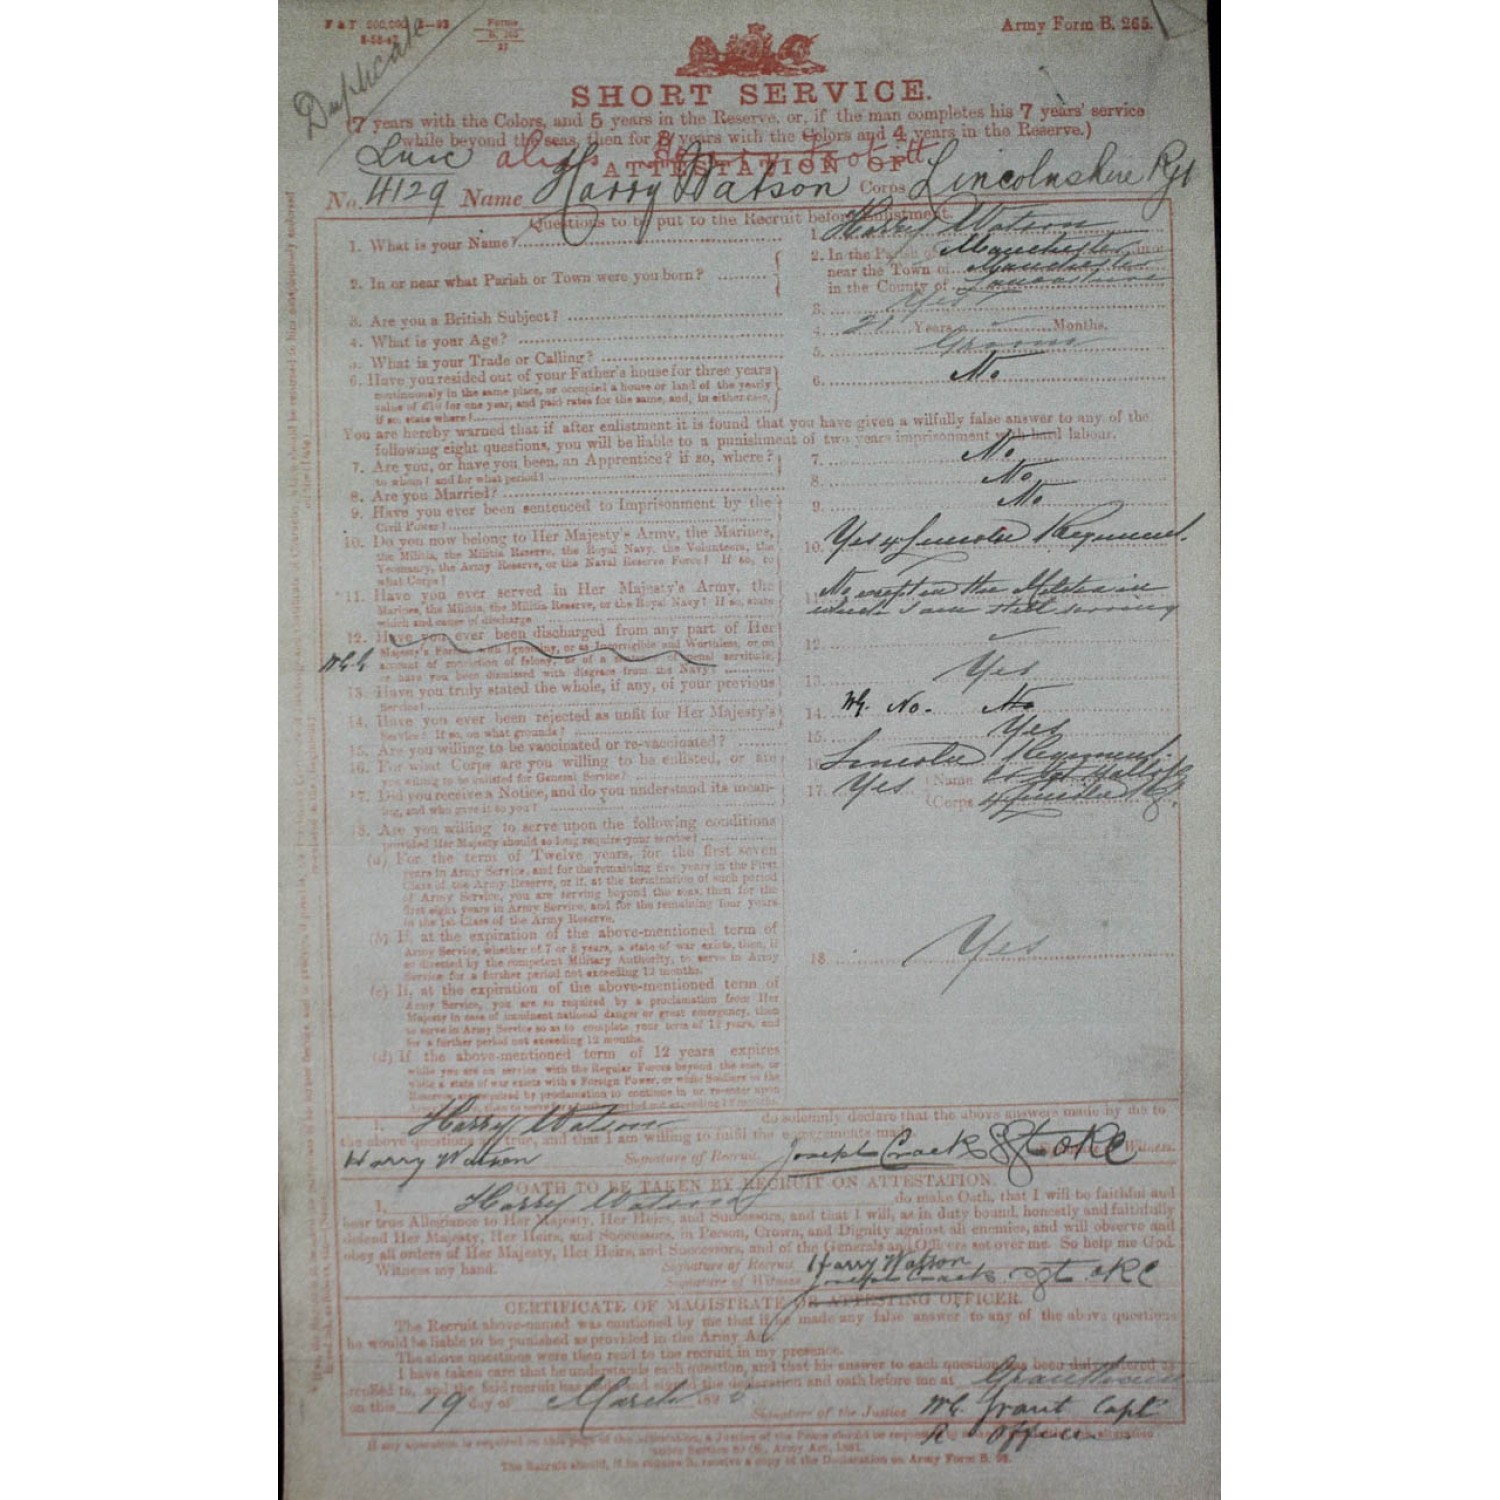 Army Form B. 265.
Duplicate
SHORT SERVICE.
(7 years with the Colors, and 5 years in the Reserve, or, if the man completes his 7 years' service
while beyond the seas, then for 8 years with the Colors and 4 years in the Reserve.)
alias
ATTESTATION OF
No. 4129 Name Harry Watson Corps Lincolnshire Rgt
Questions to be put to the Recruit before Enlistment.
1. What is your Name? 1. Harry Watson
2. In or near what Parish or Town were you born? 2. In the Parish of Manchester in or
near the Town of Manchester
in the County of
3. Are you a British Subject? 3. Yes
4. What is your Age? 4. 21 Years Months.
5. What is your Trade or Calling? 5. Groom
6. Have you resided out of your Father's house for three years 6. No
continuously in the same place, or occupied a house or land of the yearly
value of £10 for one year, and paid rates for the same, and, in either case,
if so, state where?
You are hereby warned that if after enlistment it is found that you have given a wilfully false answer to any of the
following eight questions, you will be liable to a punishment of two years imprisonment with hard labour.
7. Are you, or have you been, an Apprentice? if so, where? 7. No
to whom? and for what period?
8. Are you Married? 8. No
9. Have you ever been sentenced to Imprisonment by the 9. No
Civil Power?
10. Do you now belong to Her Majesty's Army, the Marines, 10. Yes 4 Lincoln Regiment.
the Militia, the Militia Reserve, the Royal Navy, the Volunteers, the
Yeomanry, the Army Reserve, or the Naval Reserve Force? If so, to
what Corps?
11. Have you ever served in Her Majesty's Army, the 11. No except in the Militia in
Marines, the Militia, the Militia Reserve, or the Royal Navy? If so, state which I am still serving
which and cause of discharge
12. Have you ever been discharged from any part of Her 12.
Majesty's Forces with Ignominy, or as Incorrigible and Worthless, or on
account of conviction of felony, or of a sentence of penal servitude,
or have you been dismissed with disgrace from the Navy?
13. Have you truly stated the whole, if any, of your previous 13. Yes
Service?
14. Have you ever been rejected as unfit for Her Majesty's 14. No. No
Service? If so, on what grounds?
15. Are you willing to be vaccinated or re-vaccinated? 15. Yes
16. For what Corps are you willing to be enlisted, or are 16. Lincoln Regiment.
you willing to be enlisted for General Service?
17. Did you receive a Notice, and do you understand its mean- 17. Yes Name
ing, and who gave it to you? Corps 4 Lincoln Rg.
18. Are you willing to serve upon the following conditions
provided Her Majesty should so long require your service?
(a) For the term of Twelve years, for the first seven
years in Army Service, and for the remaining five years in the First
Class of the Army Reserve, or if, at the termination of such period
of Army Service, you are serving beyond the seas, then for the
first eight years in Army Service, and for the remaining four years
in the 1st Class of the Army Reserve.
(b) If, at the expiration of the above-mentioned term of
Army Service, whether of 7 or 8 years, a state of war exists, then, if
so directed by the competent Military Authority, to serve in Army
Service for a further period not exceeding 12 months. 18. Yes
(c) If, at the expiration of the above-mentioned term of
Army Service, you are so required by a proclamation from Her
Majesty in case of imminent national danger or great emergency, then
to serve in Army Service so as to complete your term of 12 years, and
for a further period not exceeding 12 months.
(d) If the above-mentioned term of 12 years expires
while you are on service with the Regular Forces beyond the seas, or
while a state of war exists with a Foreign Power, or while Soldiers in the
Reserve are required by proclamation to continue in or re-enter upon
Army Service, then to serve for a further period not exceeding 12 months.
I, Harry Watson do solemnly declare that the above answers made by me to
the above questions are true, and that I am willing to fulfil the engagements made.
Harry Watson Signature of Recruit. Joseph Crack Sgt Witness.
OATH TO BE TAKEN BY RECRUIT ON ATTESTATION.
I, Harry Watson do make Oath, that I will be faithful and
bear true Allegiance to Her Majesty, Her Heirs, and Successors, and that I will, as in duty bound, honestly and faithfully
defend Her Majesty, Her Heirs, and Successors, in Person, Crown, and Dignity against all enemies, and will observe and
obey all orders of Her Majesty, Her Heirs, and Successors, and of the Generals and Officers set over me. So help me God.
Witness my hand. Signature of Recruit Harry Watson
Signature of Witness Joseph Crack Sgt
CERTIFICATE OF MAGISTRATE OR ATTESTING OFFICER.
The Recruit above-named was cautioned by me that if he made any false answer to any of the above questions
he would be liable to be punished as provided in the Army Act.
The above questions were then read to the recruit in my presence.
I have taken care that he understands each question, and that his answer to each question has been duly entered as
replied to, and the said recruit has made and signed the declaration and oath before me at Grantham
on this 19 day of March 189
Signature of the Justice W.G. Grant Capt
R Officer
If any alteration is required on this page of the attestation, a Justice of the Peace should be requested to
under Section 80 (6), Army Act, 1881.
The Recruit should, if he require it, receive a copy of the Declaration on Army Form B.